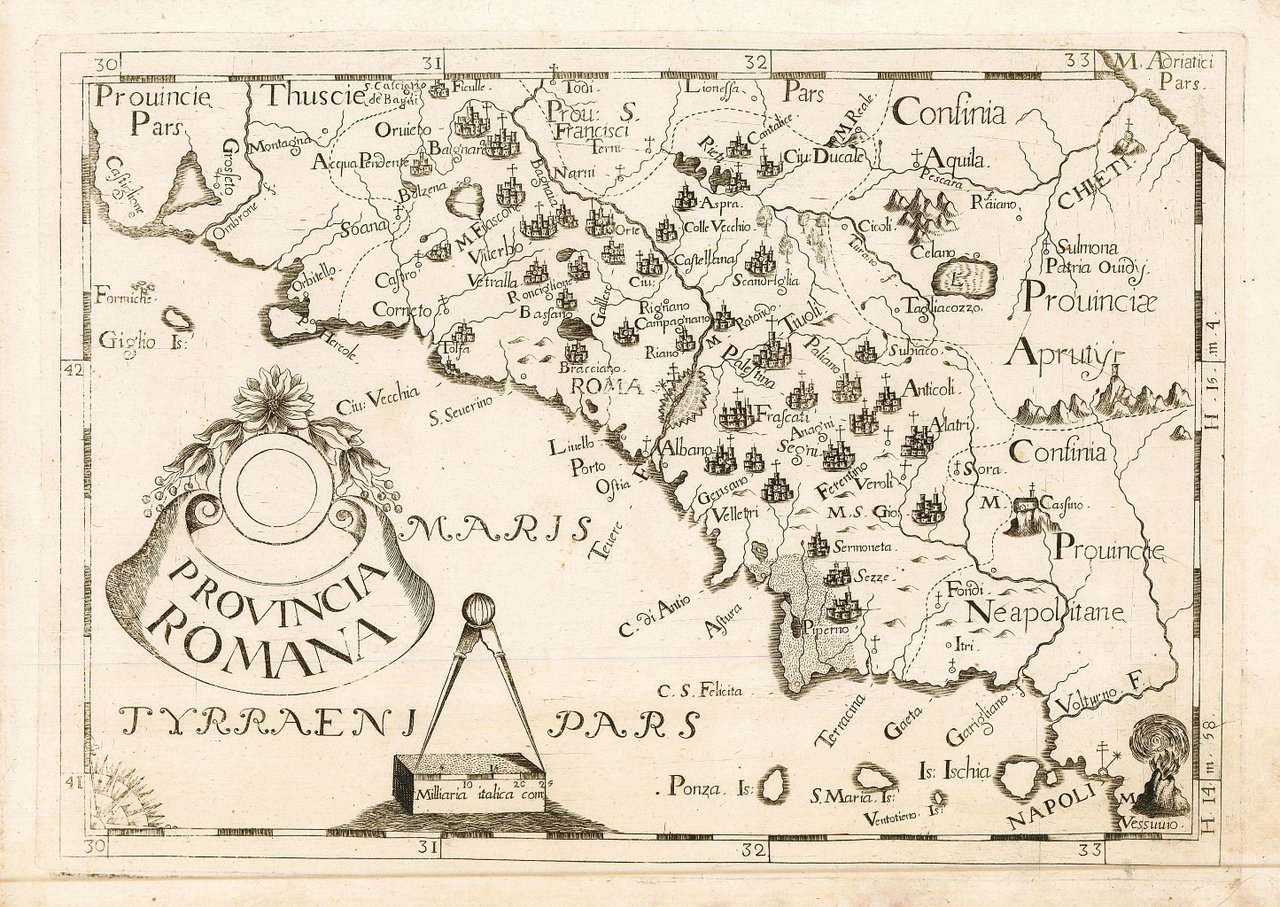 30
31
32
33
M. Adriatici
Pars.
Prouincie
Pars
Thuscie
S. Calciano
de Bagni
Ficulle.
Todi.
Lionessa
Pars
Confinia
Prou: S.
Francisci
Terni
Oruieto
Montagna
Grosseto
Castiglione
Ombrone
Acqua Pendente
Balgnarea
Bagnaia
Narni
Rieti
Cantalice
M. Reale.
Ciu: Ducale
Aquila.
Pescara
CHIETI
Raiano
Bolzena
Soana
M. Fiascone
Viterbo
Orte
Aspra
Colle Vecchio
Castellana
Ciu:
Scandriglia
Turano f.
Cicoli
Celano
L.
Sulmona
Patria Ouidy.
Prouinciæ
Aprutÿ
Orbitello
Castro
Vetralla
Ronciglione
Bassano
Gallese
Corneto
Formiche
Giglio Is:
Hercole.
Tolfa
Rignano
Campagnano
Riano
Bracciano
M. Rotondo
Tiuoli
Tagliacozzo.
Palestina
Paliano
Subiaco
Anticoli.
42
H. Is. m 4.
ROMA
Ciu: Vecchia
S. Seuerino
Liuello
Porto
Ostia
F.
Teuere
Albano
Frascati
Anagni
Segni
Alatri
Confinia
Gensano
Velletri
Ferentino
Veroli
Sora
M. S. Gio:
M. Cassino.
MARIS
PROVINCIA
ROMANA
Sermoneta
Sezze
Piperno
Prouincie
Neapolitane
Fondi
Itri.
C. di Antio
Astura
C. S. Felicita
Terracina
Gaeta
Garigliano
Volturno F.
TYRRAENI PARS
10
20
25
Milliaria italica com
Ponza. Is:
S. Maria. Is:
Ventotieno. Is:
Is: Ischia
NAPOLI
M. Vessuuio.
41
H. 14. m. 58.
30
31
32
33